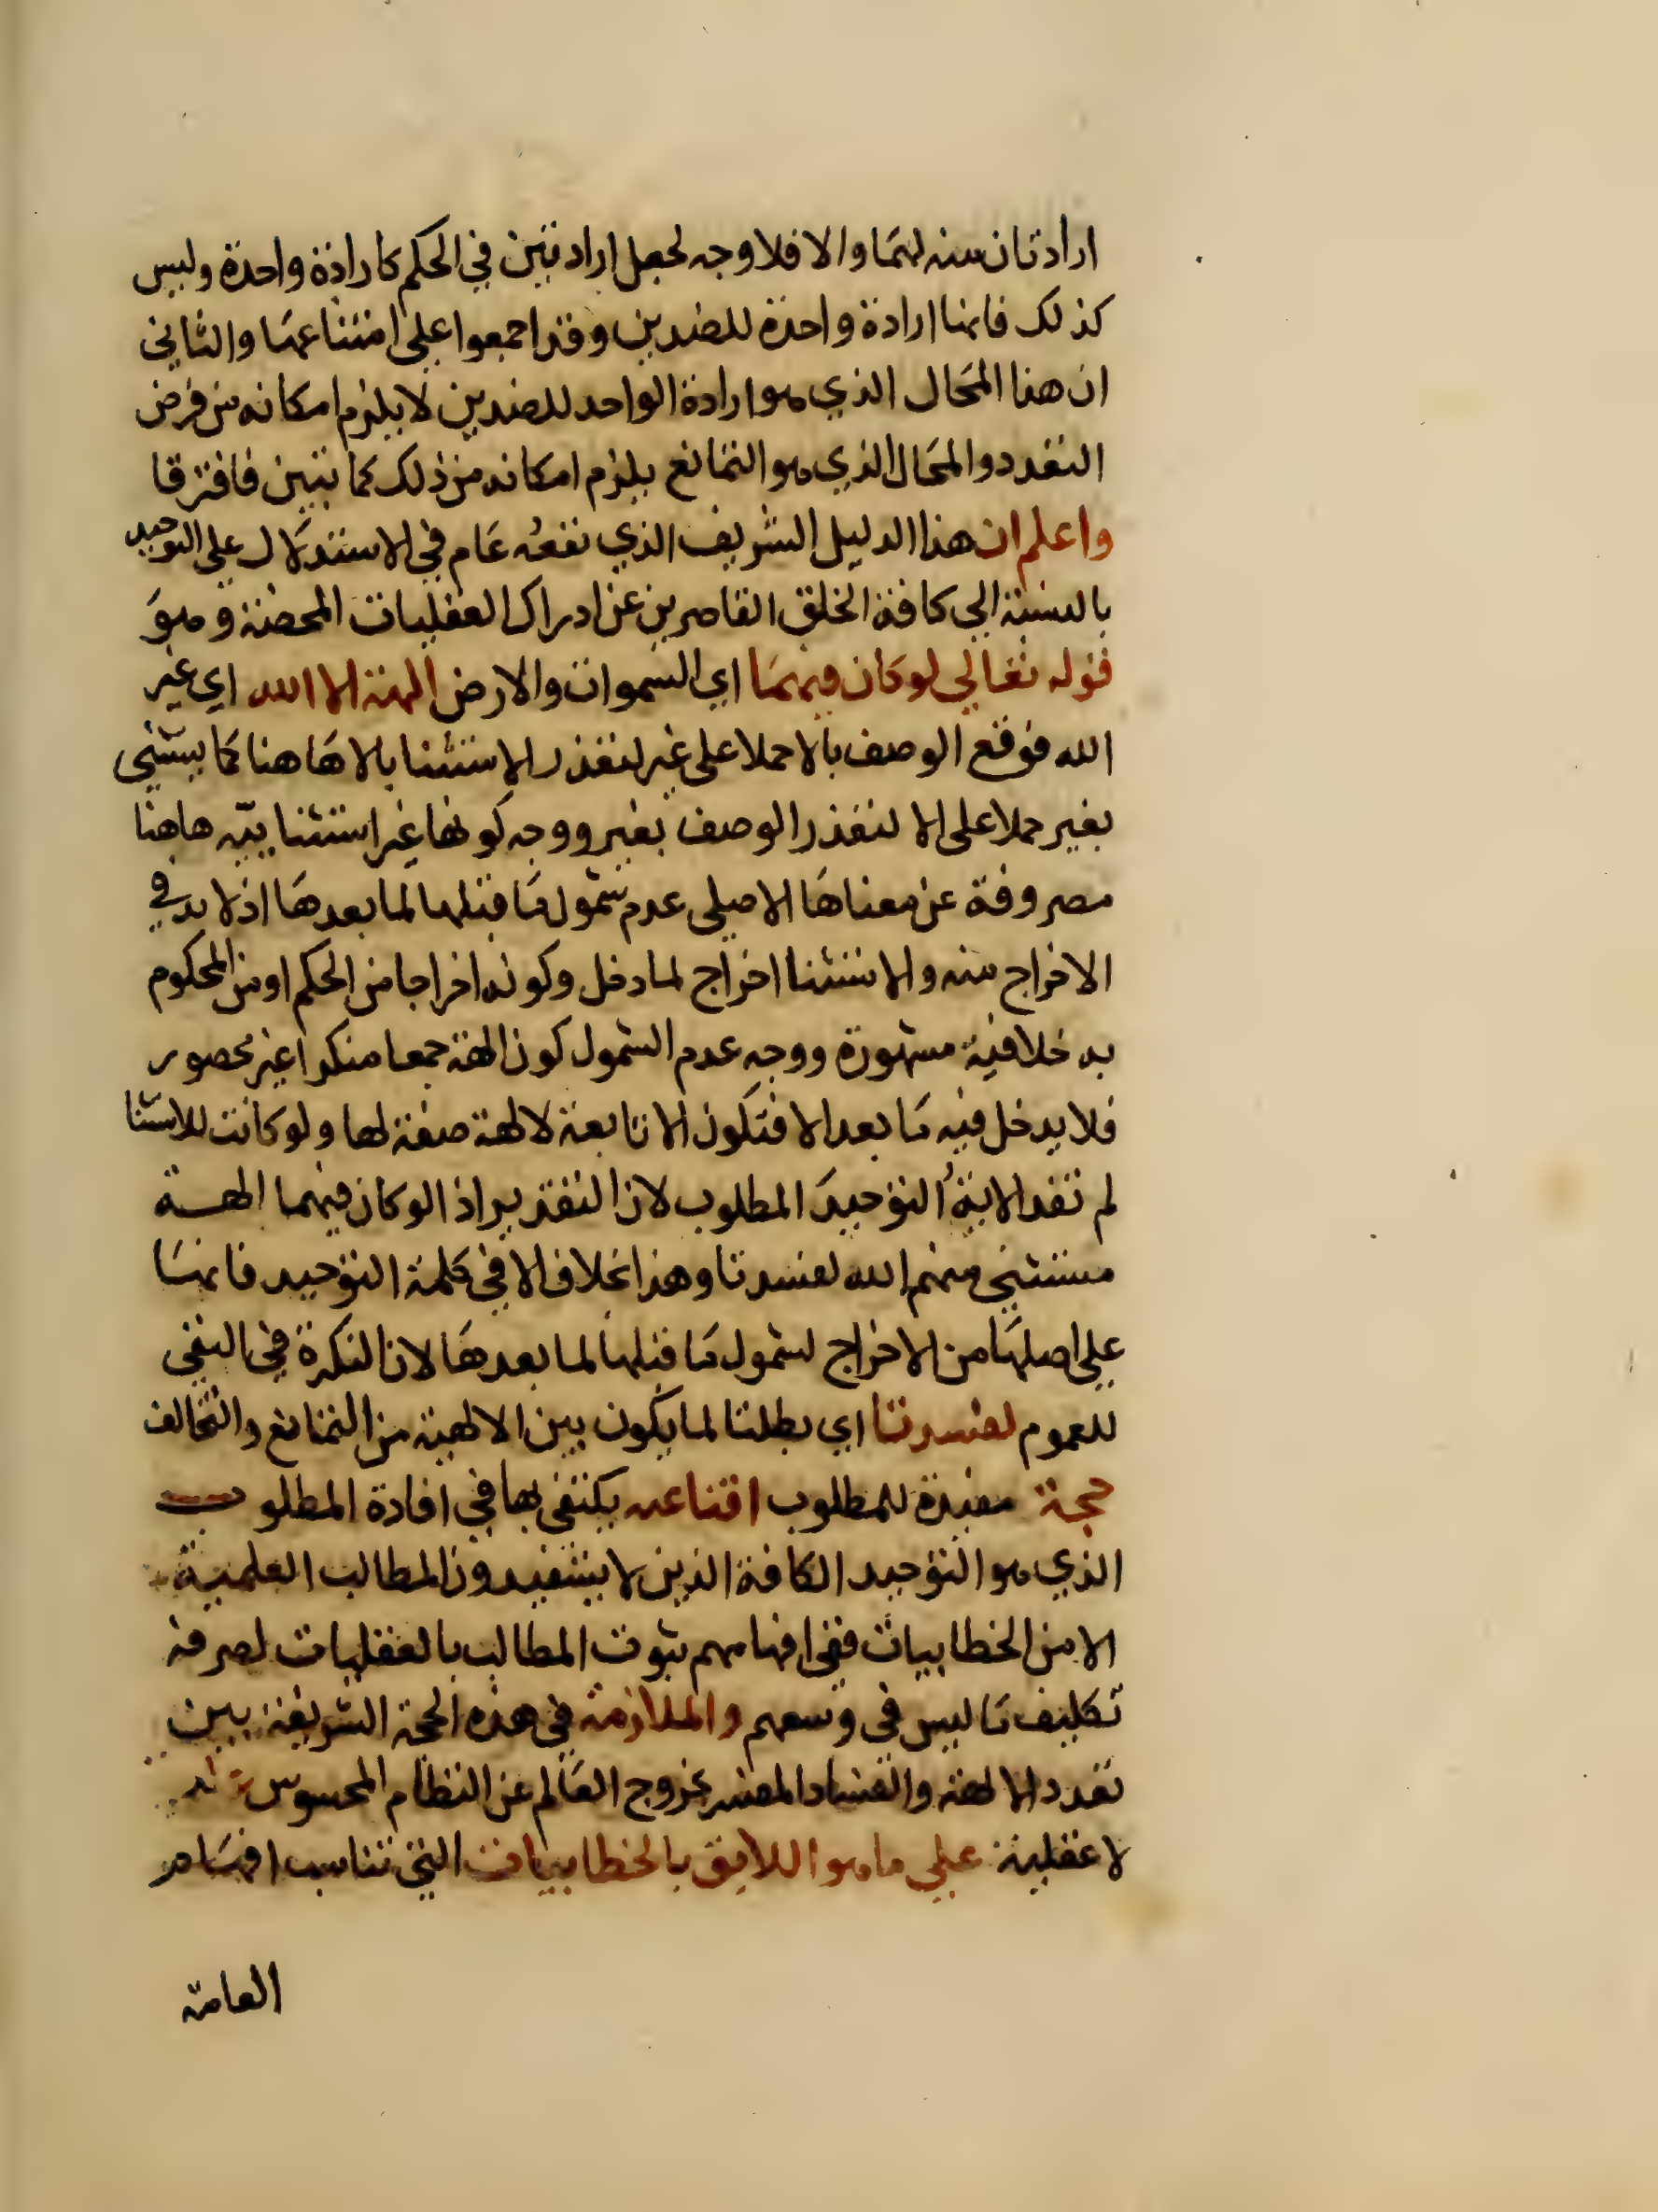 ارادتان منه لهما والا فلا وجه لجعل ارادتين في الحكم كارادة واحدة وليس
كذلك فانها ارادة واحدة للضدين وقد اجمعوا على امتناعها والثاني
ان هذا المحال الذي هو ارادة الواحد للضدين لا يلزم امكانه من فرض
التعدد والمحال الذي هو التمانع يلزم امكانه من ذلك كما تبين فافترقا
واعلم ان هذا الدليل الشريف الذي نفعه عام في الاستدلال على التوحيد
بالنسبة الى كافة الخلق القاصرين عن ادراك العقليات المحضة وهو
قوله تعالى لو كان فيهما اي السموات والارض الهة الا الله اي غير
الله فوقع الوصف بالا حملا على غير لتعذر الاستثنا بالا هاهنا كما يستثنى
بغير حملا على الا لتعذر الوصف بغير ووجه كونها غير استثنايية هاهنا
مصروفة عن معناها الاصلي عدم شمول ما قبلها لما بعدها اذ لا بد في
الاخراج منه والاستثنا اخراج لما دخل وكونه اخراجا من الحكم او من المحكوم
به خلافية مشهورة ووجه عدم الشمول كون الهة جمعا منكرا غير محصور
فلا يدخل فيه ما بعد الا فتكون الا تابعة لالهة صفة لها ولو كانت للاستثنا
لم تفد الاية التوحيد المطلوب لان التقدير اذا لو كان فيهما الهة
مستثنى منهم الله لفسدتا وهذا بخلاف الا في كلمة التوحيد فانها
على اصلها من الاخراج لشمول ما قبلها لما بعدها لان النكرة في النفي
للعموم لفسدتا اي بطلتا لما يكون بين الالهة من التمانع والتخالف
حجة مفيدة للمطلوب اقناعيه يكتفى بها في افادة المطلوب
الذي هو التوحيد الكافة الذين لا يستفيدون المطالب العلمية
الا من الخطابيات ففي افهامهم ثبوت المطالب بالعقليات لصرفة
تكليف ما ليس في وسعهم والملازمة في هذه الحجة الشريفة بين
تعدد الالهة والفساد المفسر بخروج العالم عن النظام المحسوس
لا عقلية على ما هو اللايق بالخطابيات التي تناسب افهام
العامة